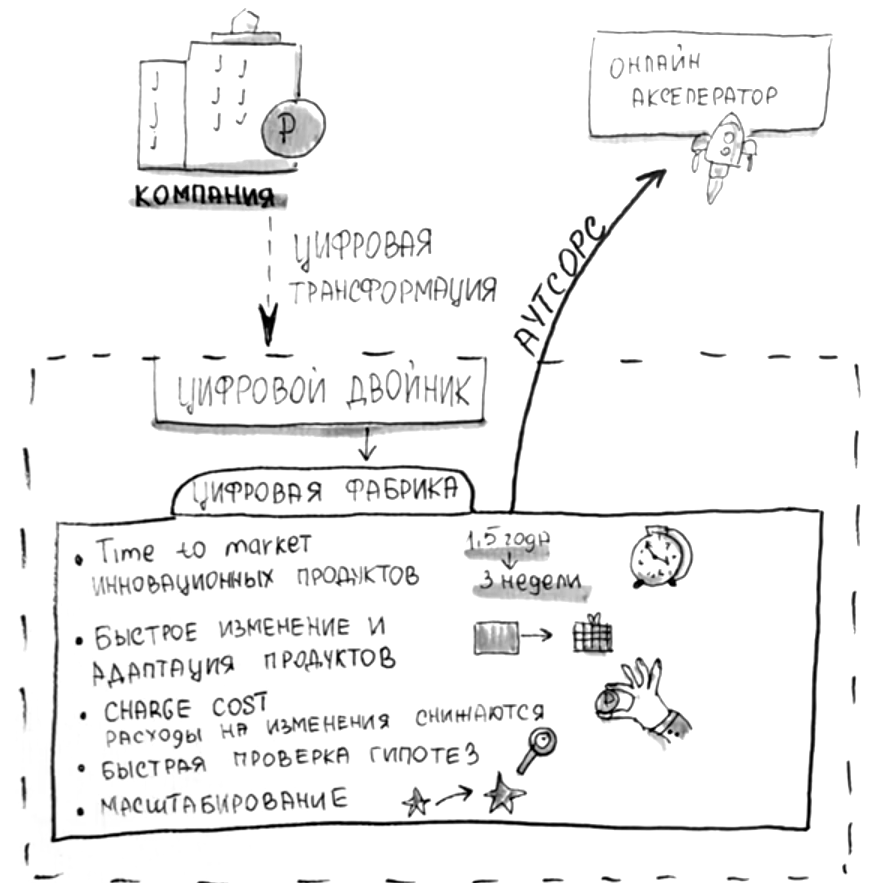 ОНЛАЙН
АКСЕЛЕРАТОР
Р
КОМПАНИЯ
ЦИФРОВАЯ
ТРАНСФОРМАЦИЯ
АУТСОРС
ЦИФРОВОЙ ДВОЙНИК
ЦИФРОВАЯ ФАБРИКА
• Time to market
ИННОВАЦИОННЫХ ПРОДУКТОВ
1,5 года
3 недели
• БЫСТРОЕ ИЗМЕНЕНИЕ И
АДАПТАЦИЯ ПРОДУКТОВ
• CHARGE COST
РАСХОДЫ НА ИЗМЕНЕНИЯ СНИЖАЮТСЯ
Р
• БЫСТРАЯ ПРОВЕРКА ГИПОТЕЗ
• МАСШТАБИРОВАНИЕ